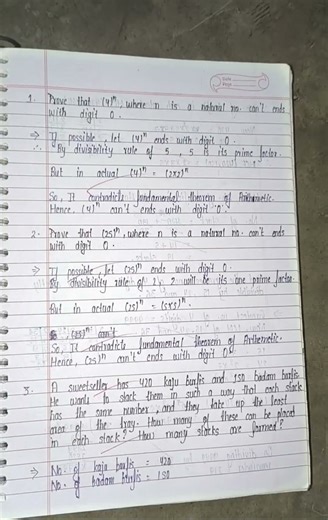 1. Prove that (4)ⁿ, where n is a natural no. can't ends
with digit 0.
⇒ If possible, let (4)ⁿ ends with digit 0.
∴ By divisibility rule of 5, 5 is its prime factor.
But in actual (4)ⁿ = (2×2)ⁿ
So, It contradicts fundamental theorem of Arithmetic.
Hence, (4)ⁿ can't ends with digit 0.
2. Prove that (25)ⁿ, where n is a natural no. can't ends
with digit 0.
⇒ If possible, let (25)ⁿ ends with digit 0.
By divisibility rule of 2, 2 will be its one prime factor
But in actual (25)ⁿ = (5×5)ⁿ.
(25)ⁿ can't
So, It contradicts fundamental theorem of Arithmetic.
Hence, (25)ⁿ can't ends with digit 0.
3. A sweetseller has 420 kaju burfis and 150 badam burfis.
He wants to stack them in such a way that each stack
has the same number, and they take up the least
area of the tray. How many of these can be placed
in each stack? How many stacks are formed?
⇒ No. of kaju burfis = 420
No. of badam burfis = 150